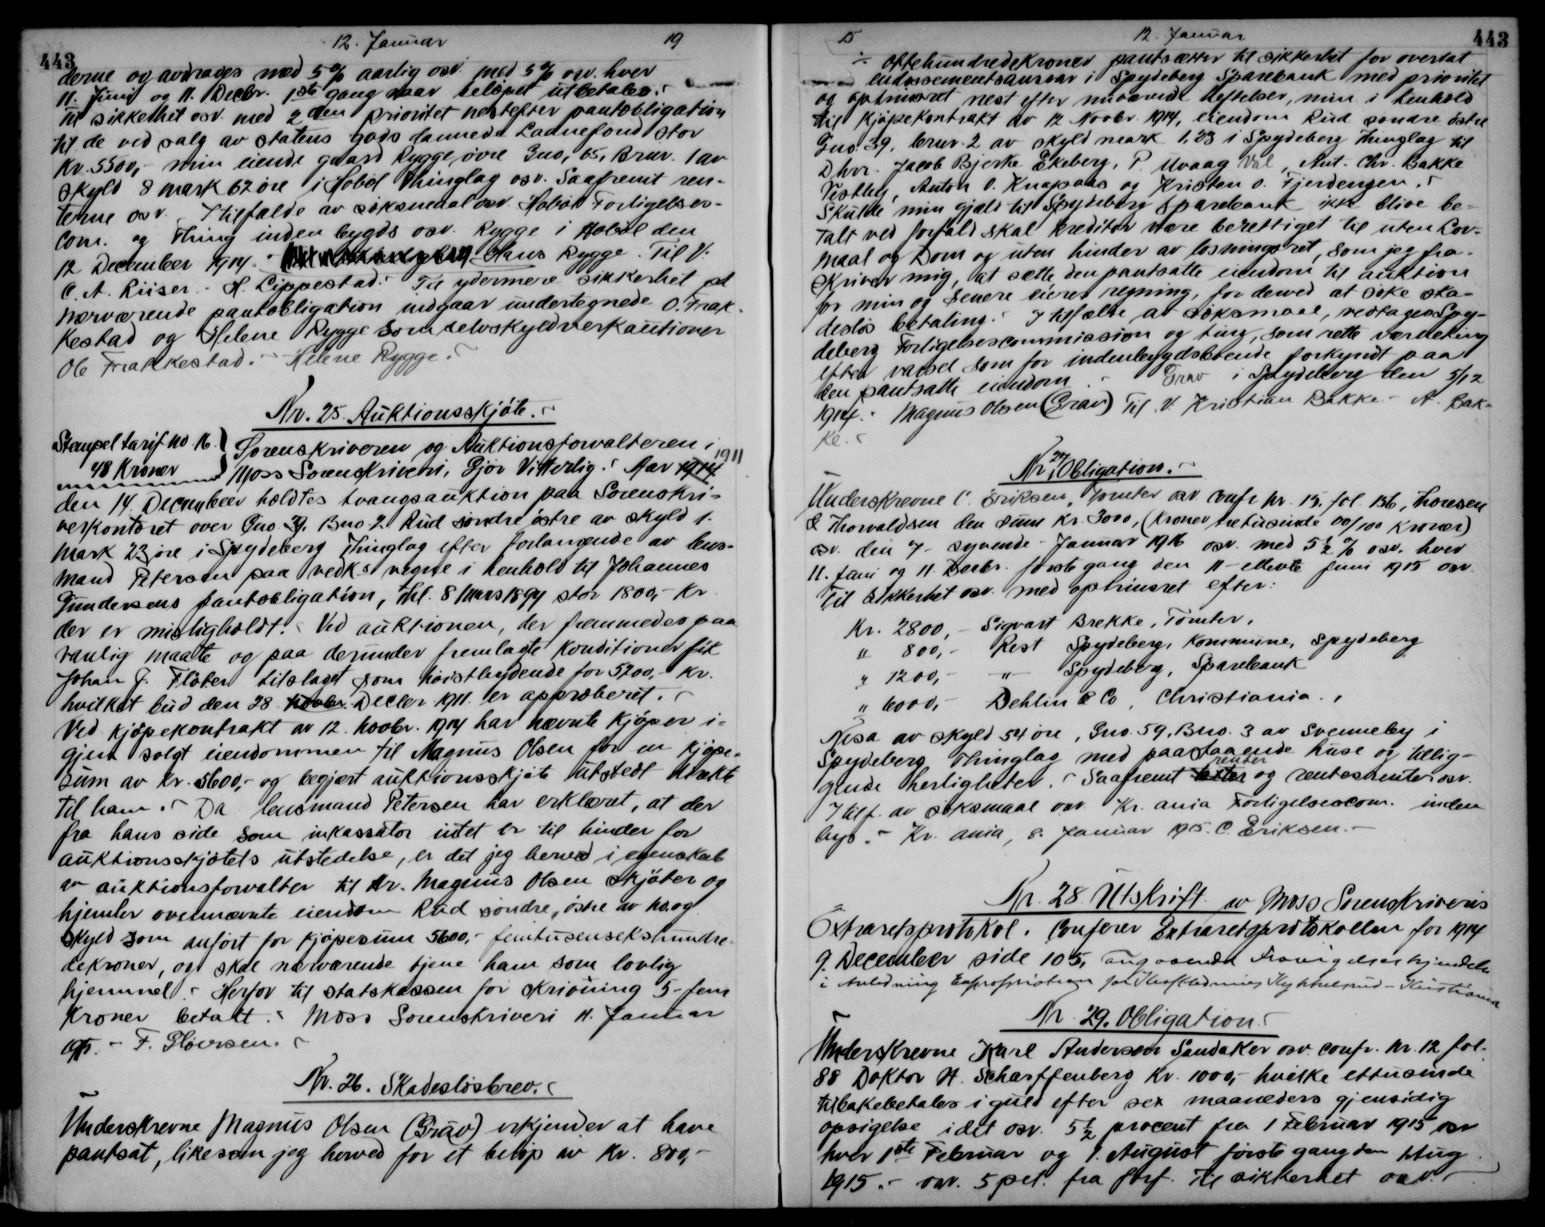 443
12. Januar 19
derne og avdrages med 5 % aarlig osv. med 5 % osv. hver
11. Juni og 11. Decbr. 1ste gang naar beløpet utbetales.
Til sikkerhet osv. med 2den prioritet nestefter pantobligation
til de ved salg av statens gods dannede Laanefond stor
Kr. 5500,- min eiende gaard Rygge, övre Gno, 65, Brnr. 1 av
skyld 8 mark 62 öre i Hobøl Thinglag osv. Saafremt ren-
terne osv. I tilfælde av söksmaal osv. Hobøl Forligelses-
com. og Thing inden bygds osv. Rygge i Hobøl den
12 December 1914. Hans Rygge. Til V.
C. A. Riiser. H. Lippestad. Til ydermere sikkerhet
nærværende pantobligation indgaar undertegnede O. Frak-
kestad og Helene Rygge som selvskyldnerkautioner
Ole Frakkestad. Helene Rygge.
Nr. 25. Auktionsskjöte.
Stempel tarif no 16
48 Kroner
Sorenskriveren og Auktionsforvalteren i
Moss Sorenskriveri, Gjör Vitterlig: Aar 1914 1911
den 14. December holdtes tvangsauktion paa Sorenskri-
verkontoret over Gno 39. Bno 2. Rud söndre östre av skyld 1.
mark 23 öre i Spydeberg Thinglag efter forlangende av lens-
mand Petersen paa vedk.s vegne i henhold til Johannes
Gundersens pantobligation, thl. 8 Mars 1894 stor 1800,- Kr.
der er misligholdt. Ved auktionen, der fremmedes paa
vanlig maate og paa derunder fremlagte Konditioner fik
Johan J. Fløter tilslaget som höistbydende for 5700,- Kr.
hvilket bud den 28. Decbr 1911 er approberet.
Ved Kjöpekontrakt av 12. Novbr. 1914 har nævnte Kjöper i-
gjen solgt eiendommen til Magnus Olsen for en Kjöpe-
sum av Kr. 5600,- og begjært auktionsskjöte utstedt direkte
til ham. Da lensmand Petersen har erklæret, at der
fra hans side som inkassator intet er til hinder for
auktionsskjötets utstedelse, er det jeg herved i egenskab
av auktionsforvalter til Hr. Magnus Olsen skjöter og
hjemler ovennævnte eiendom Rud söndre, östre av no. og
skyld som anfört for kjöpesum 5600,- femtusensekshundre-
dekroner, og skal nærværende tjene ham som lovlig
hjemmel. Herfor til statskassen for skrivning 5- fem
Kroner betalt. Moss Sorenskriveri 11. Januar
1915. - F. Gløersen.
Nr. 26. Skadeslösbrev.
Underskrevne Magnus Olsen (Grav) erkjender at have
pantsat, likesom jeg herved for et belöp av Kr. 800,-
15 12. Januar 443
÷ ottehundredekroner pantsætter til sikkerhet for overtat
endossementsansvar i Spydeberg Sparebank med prioritet
og optrinsret nest efter nuværende heftelser, min i henhold
til Kjöpekontrakt av 12 Novbr. 1914, eiendom Rud söndre östre
Gno 39, brnr. 2 av skyld mark 1,23 i Spydeberg Thinglag til
D'hrr. Jacob Bjerke Ekeberg, P. Mvaag, Ant. Chr. Bakke
Vestby, Anton O. Knapaas og Kristen O. Fjerdengen.
Skulde min gjæld til Spydeberg Sparebank ikke blive be-
talt ved forfald skal kreditor være berettiget til uten Lov-
maal og Dom og uten hinder av lösningsret, som jeg fra-
skriver mig, at sætte den pantsatte eiendom til auktion
for min og senere eieres regning, for derved at söke ska-
deslös betaling. I tilfælde av söksmaal, vedtages Spy-
deberg Forligelsescommission og ting, som rette værneting
efter varsel som for indenbygdsboende forkyndt paa
den pantsatte eiendom. Grav i Spydeberg den 5/12
1914. Magnus Olsen (Grav) Til V. Kristian Bakke. A. Bak-
ke.
Nr. 27. Obligation.
Underskrevne C. Eriksen, Tomter osv. confr. nr. 15. fol. 136, Thoresen
& Thorvaldsen den sum Kr. 3000, (Kroner tretusinde 00/100 Kroner)
osv. den 7- syvende- Januar 1916 osv. med 5 1/2 % osv. hver
11. Juni og 11. Decbr. förste gang den 11- ellevte Juni 1915 osv.
Til sikkerhet osv. med optrinsret efter:
Kr. 2800,- Sigvart Brekke, Tomter,
" 800,- Rest Spydeberg Kommune, Spydeberg
" 1200,- " Spydeberg, Sparebank
" 6000,- Dehlin & Co, Christiania.
Næsa av skyld 54 öre, Gno. 59, Bno. 3 av Svenneby i
Spydeberg Thinglag med paastaaende huse og tillig-
gende herligheter. Saafremt renter og rentesrenter osv.
I tilf. av söksmaal osv. Kr.ania Forligelsescom. inden
bys. - Kr.ania, 8. Januar 1915. C. Eriksen.
Nr. 28. Utskrift av Moss Sorenskriveris
Extraretsprotokol. Confr Extraretsprotokollen for 1914
9. December side 105, angaaende
i Anledning Expropriation
Nr. 29. Obligation.
Underskrevne Karl Andersen Sandaker osv. confr. nr. 12 fol.
88 Doktor H. Scharffenberg Kr. 1000,- hvilke ettusinde
tilbakebetales i guld efter sex maaneders gjensidig
opsigelse i det osv. 5 1/2 procent fra 1 Februar 1915 osv.
hver 1ste Februar og 1. August förste gang den 1 Aug.
1915.- osv. 5 pct. fra forf. Til sikkerhet osv.